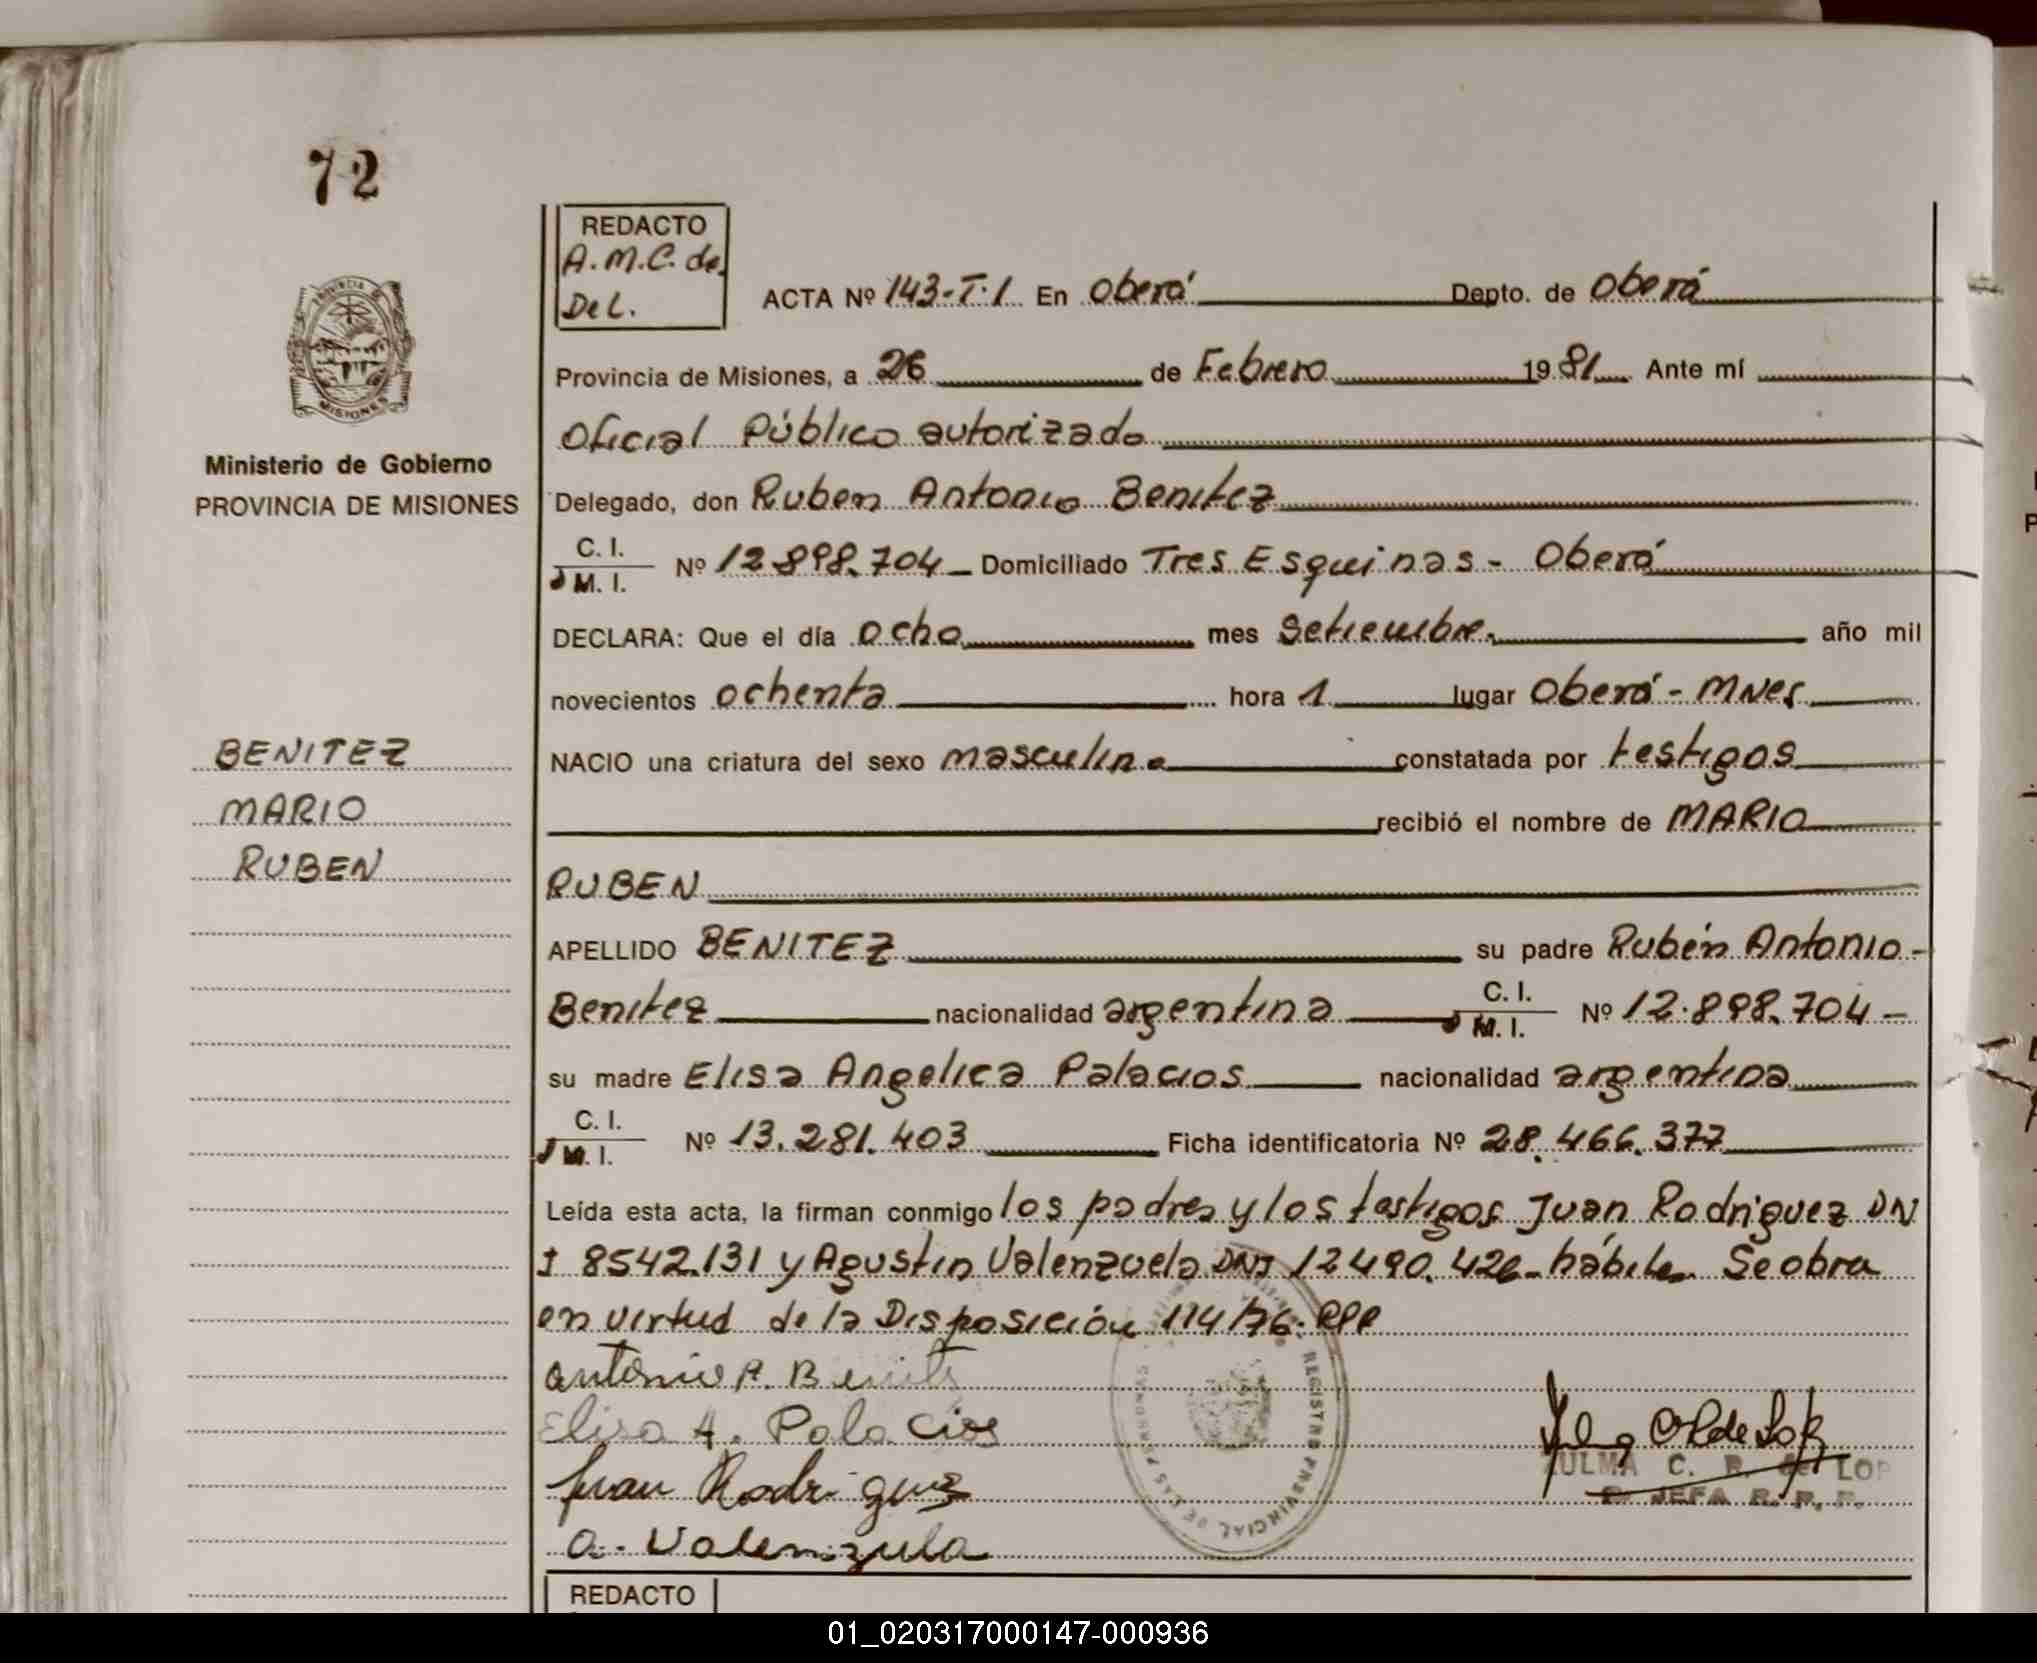 72
REDACTO
A.M.C. de
Del.
ACTA Nº 143-T.1 En Oberá Depto. de Oberá
Provincia de Misiones, a 26 de Febrero 1981 Ante mí
Oficial Público autorizado
Ministerio de Gobierno
PROVINCIA DE MISIONES
Delegado, don Ruben Antonio Benitez
C. I.
M. I.
Nº 12.898.704 Domiciliado Tres Esquinas - Oberá
DECLARA: Que el día ocho mes setiembre año mil
novecientos ochenta hora 1 lugar Oberá - Mnes
BENITEZ
MARIO
RUBEN
NACIO una criatura del sexo masculino constatada por testigos
recibió el nombre de MARIO
RUBEN
APELLIDO BENITEZ su padre Rubén Antonio -
Benitez nacionalidad argentina C. I. M. I. Nº 12.898.704 -
su madre Elisa Angelica Palacios nacionalidad argentina
C. I.
M. I.
Nº 13.281.403 Ficha identificatoria Nº 28.466.377
Leída esta acta, la firman conmigo los padres y los testigos Juan Rodriguez DN
I 8542.131 y Agustin Valenzuela DNI 12490.426 - hábiles Se obra
en virtud de la Disposición 114/76. RPP
Antonio R. Benitz
Elisa A. Palacios
Juan Rodriguez
A. Valenzuela
REGISTRO PROVINCIAL DE LAS PERSONAS
ZULMA C. B. de LOP
JEFA R. P. P.
REDACTO
01_020317000147-000936